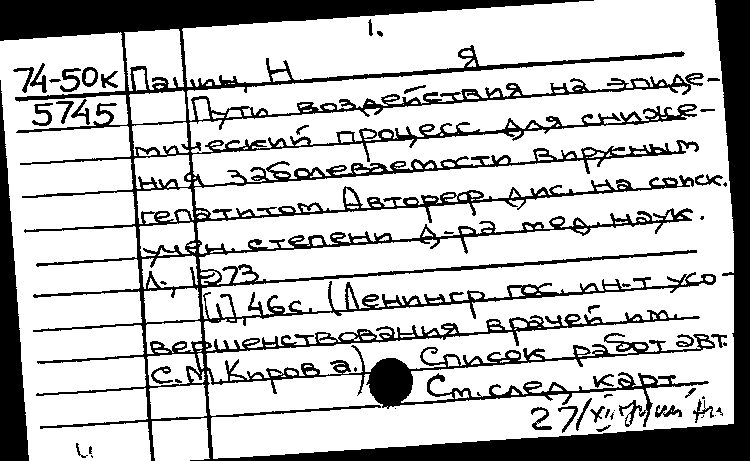 1.
74-50к Пашин, Н Я
5745 Пути воздействия на эпиде-
мический процесс для сниже-
ния заболеваемости вирусным
гепатитом. Автореф. дис. на соиск.
учен. степени д-ра мед. наук.
Л., 1973.
[1], 46с. (Ленингр. гос. ин-т усо-
вершенствования врачей им.
С.М.Кирова.) Список работ авт.
См. след. карт.
27/XII